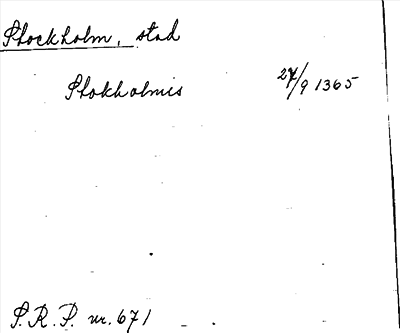 Stockholm, stad
Stokholmis 27/9 1365
S.R.P. nr. 671